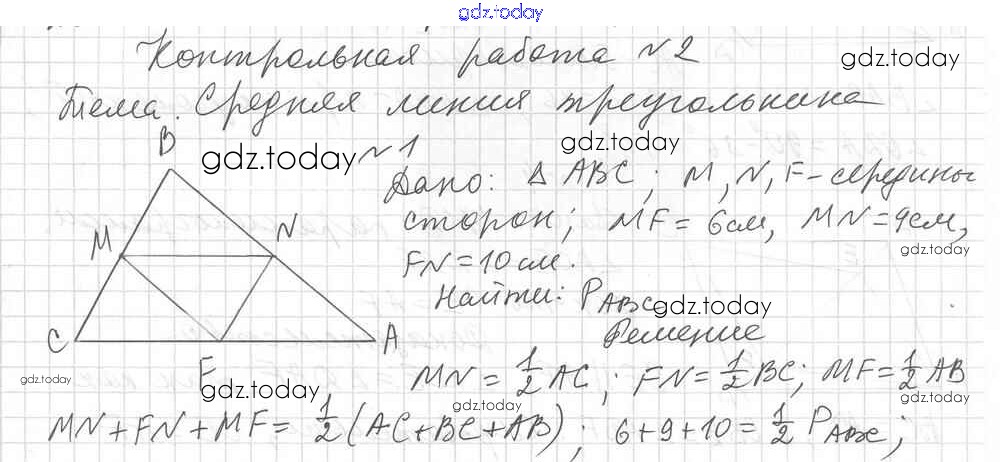 gdz.today
Контрольная работа №2
gdz.today
Тема. Средняя линия треугольника
B
gdz.today
№1
gdz.today
Дано: Δ ABC; M, N, F - середины
сторон; MF = 6см, MN = 9см,
gdz.today
FN = 10 см.
Найти: P ABC
gdz.today
M
N
C
A
F
Решение
gdz.today
gdz.today
MN = 1/2 AC; FN = 1/2 BC; MF = 1/2 AB
gdz.today
gdz.today
MN + FN + MF = 1/2 (AC + BC + AB); 6 + 9 + 10 = 1/2 P ABC;